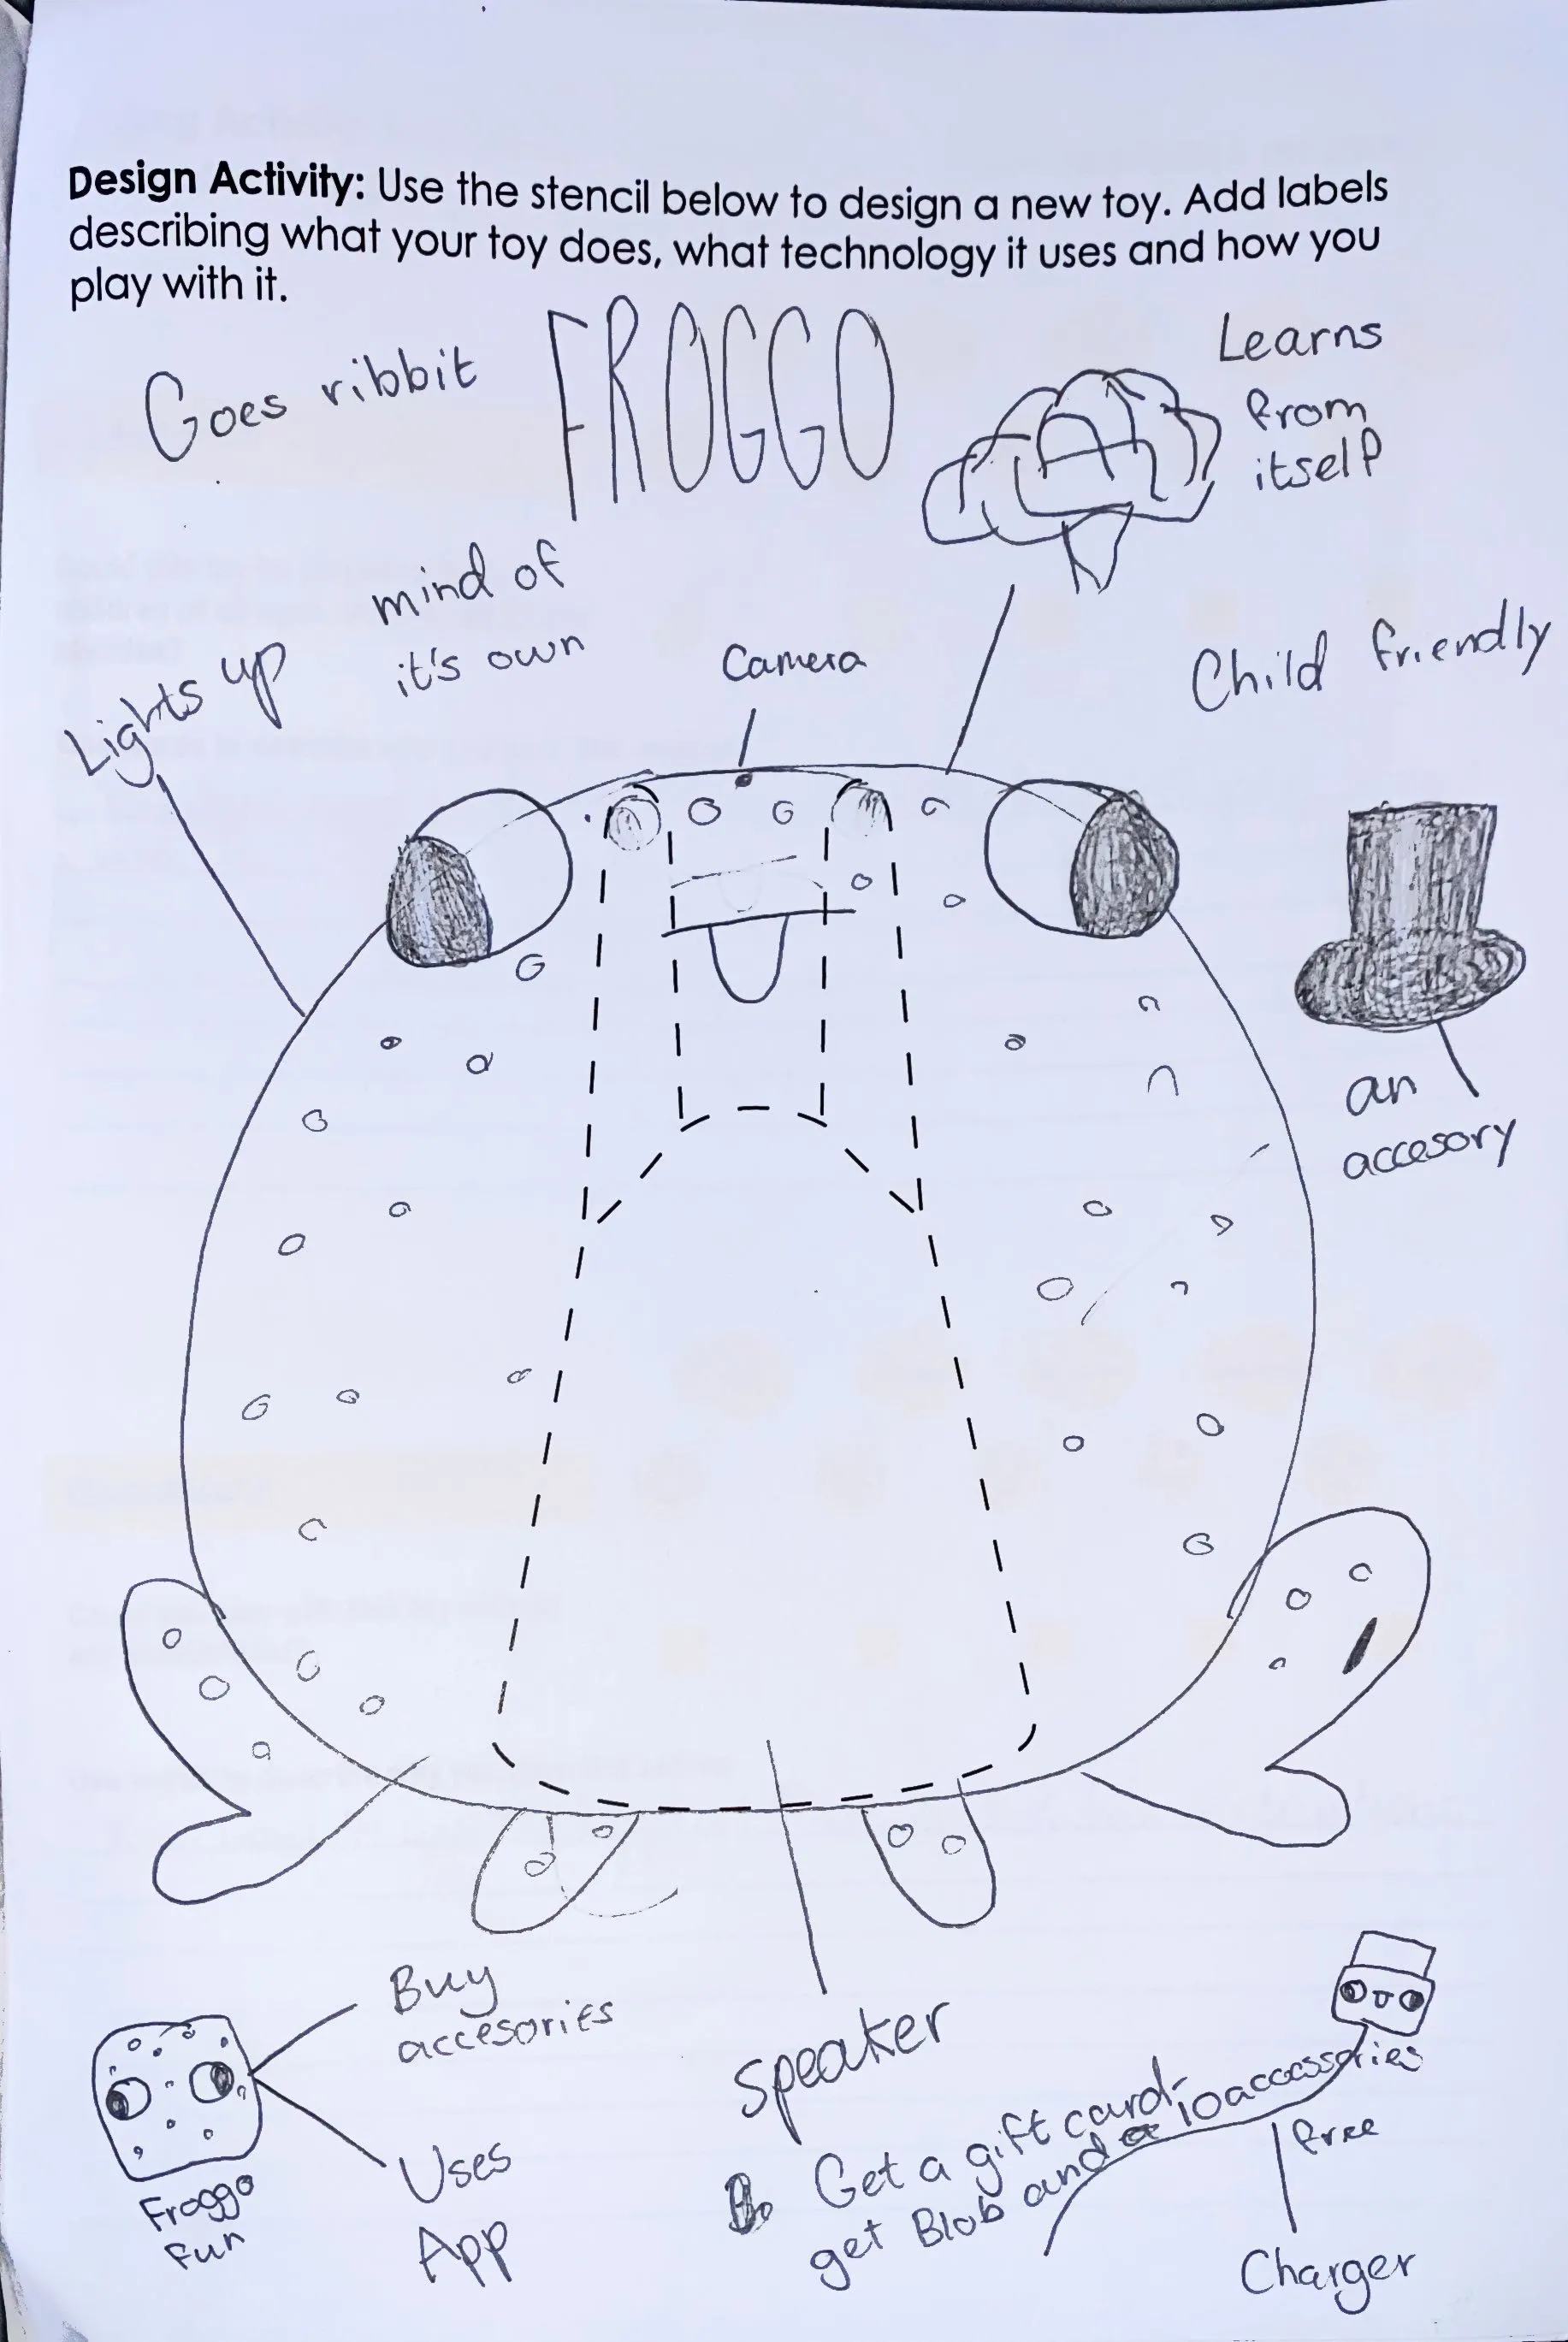 Design Activity: Use the stencil below to design a new toy. Add labels
describing what your toy does, what technology it uses and how you
play with it.
Goes ribbit
FROGGO
Learns
from
itself
mind of
it's own
Lights up
Camera
Child friendly
an
accesory
Buy
accesories
Uses
App
Froggo
Fun
speaker
Get a gift card
get Blob and 10 accessories
free
Charger